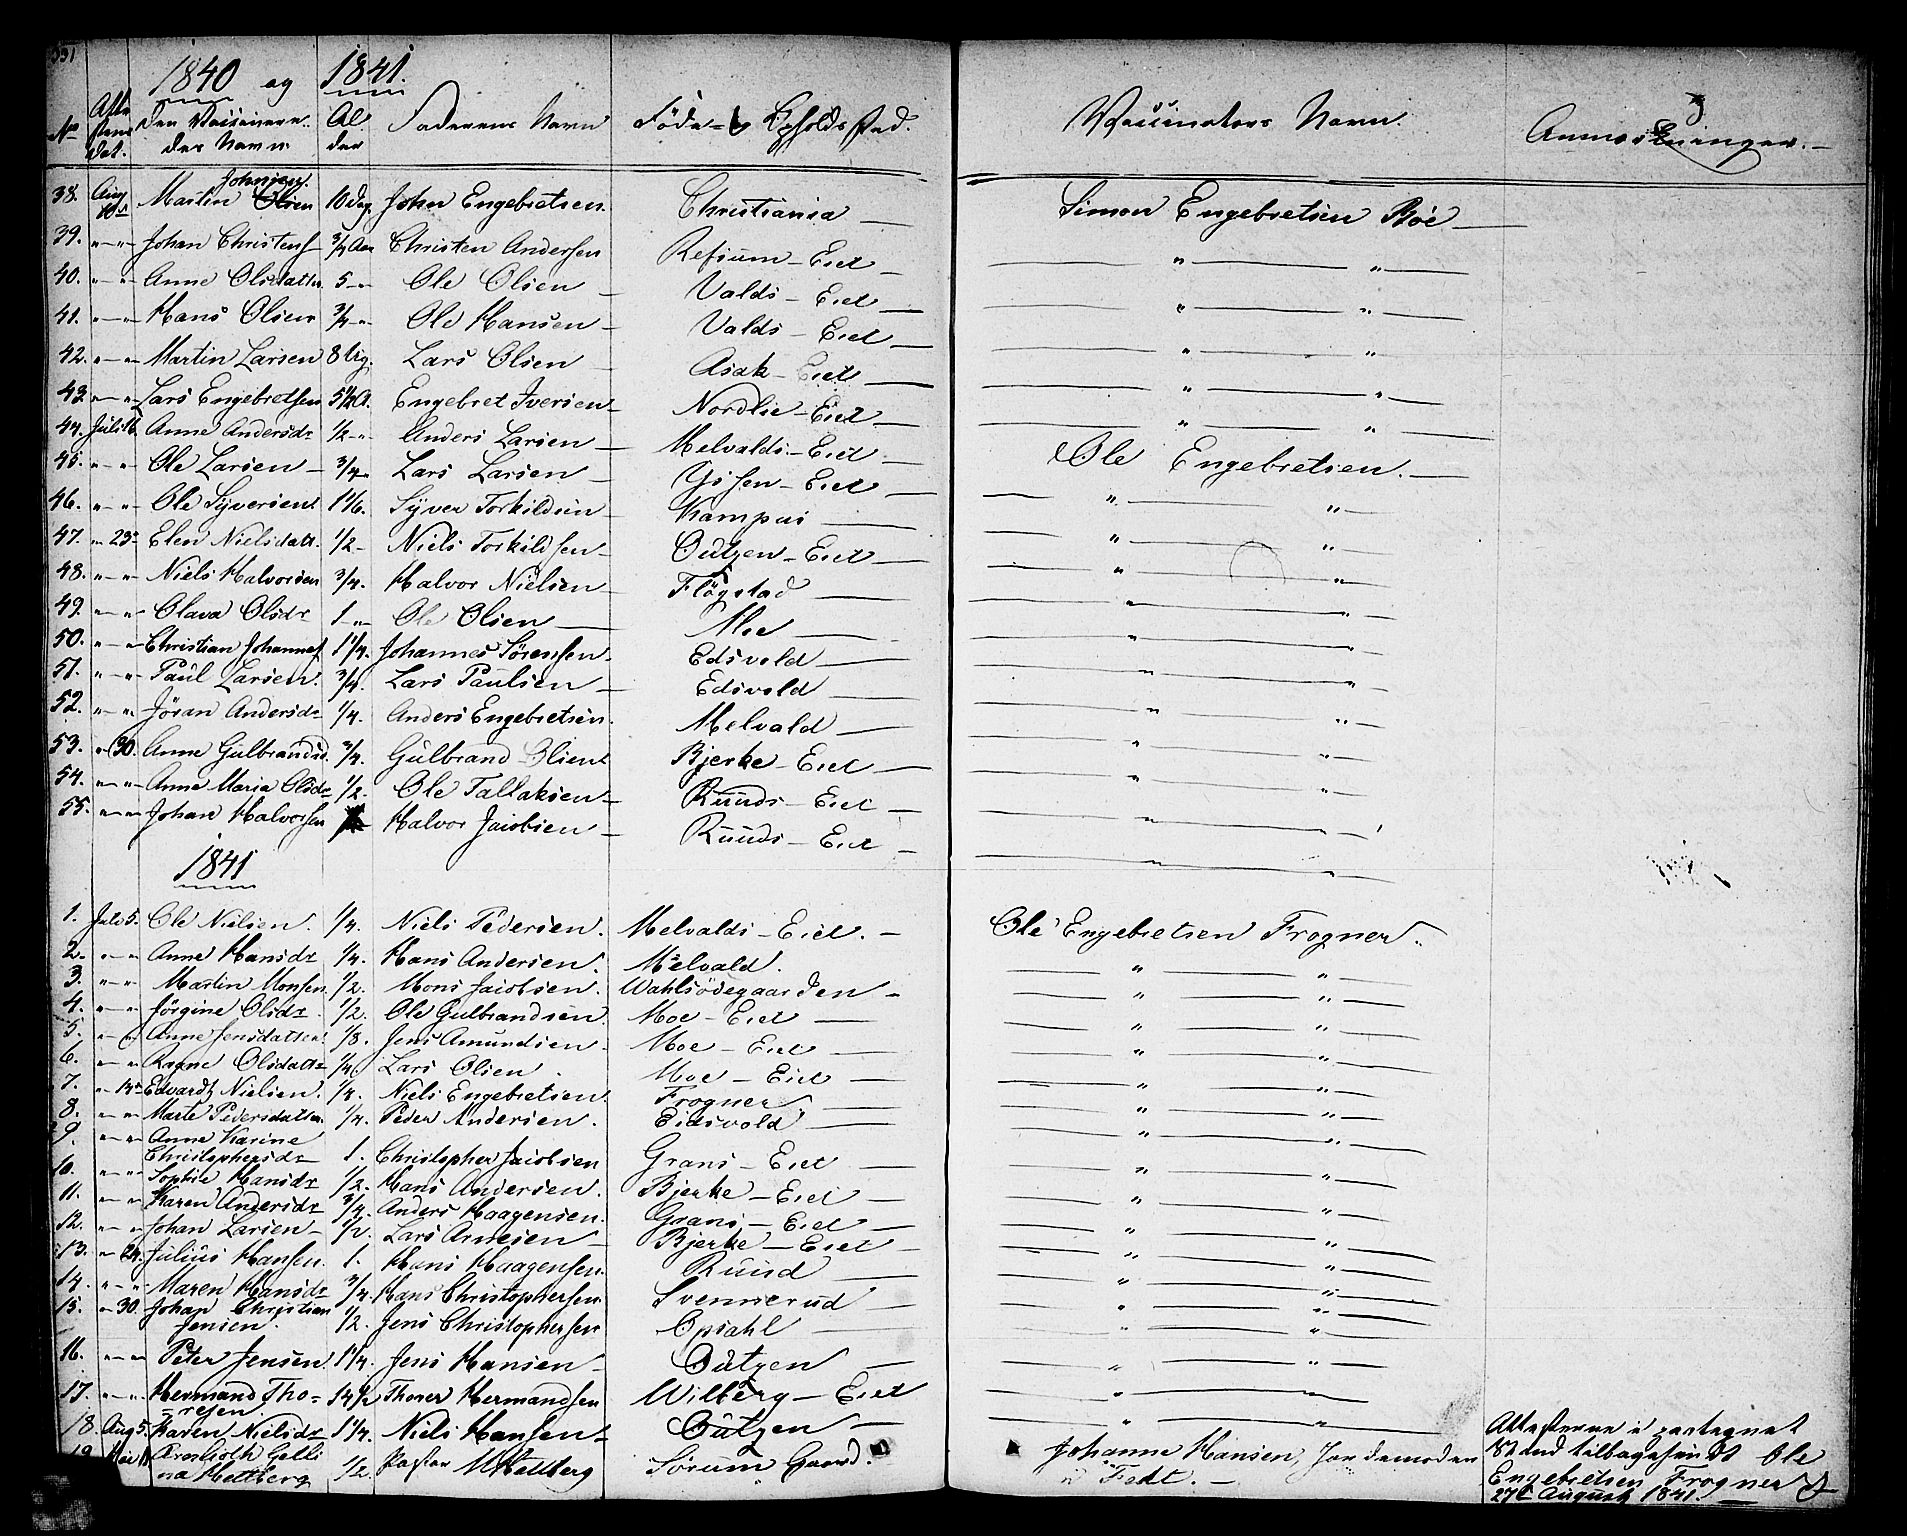 331
1840 og 1841.
No Atte stens dat. Den Vaccinere des Navn Al der Faderens Navn Föde- & Opholds stæd. Vaccinators Navn. Anmærkninger.
38. Aug 10. Martin Johnsen. Olsen 10 Dag. John Engebretsen. Christiania — Simon Engebretsen Böe —
39. "—" Johan Christens 3/4 Aar Christen Andersen Refsum-Eiet — " — "
40. "—" Anne Olsdatter 5-" Ole Olsen — Valds-Eiet — " — "
41. "—" Hans Olsen 3/4-" Ole Hansen — Valds-Eiet — " — "
42. "—" Martin Larsen 8 Ug. Lars Olsen — Asak-Eiet — " — "
43. "—" Lars Engebretsen 5 1/2 A. Engebret Iversen — Nordlie-Eiet — " — "
44. Juli 16. Anne Andersdr 1/2-" Anders Larsen — Melvalds-Eiet — Ole Engebretsen. —
45. "—" Ole Larsen — 3/4- Lars Larsen — -Eiet — " — "
46. "—" Ole Syversen. 1 1/6. Syver Torkildsen — Kampaa — " — "
47. " 23- Elen Nielsdatt. 1/2- Niels Torkildsen — Outzen-Eiet — " — "
48. "—" Niels Halvorsen 3/4. Halvor Nielsen — Flögstad — " — "
49. "—" Olava Olsdr 1-" Ole Olsen — Moe — " — "
50. "—" Christian Johannes 1 1/4. Johannes Sörensen — Edsvold — " — "
51. "—" Paul Larsen. 3/4. Lars Paulsen — Edsvold — " — "
52. "—" Jöran Andersdr 1/4. Anders Engebretsen. Melvald — " — "
53. " 30. Anne Gulbrandsd. 3/4. Gulbrand Olsen Bjerke-Eiet — " — "
54. "—" Anne Maria Olsdr 1/2. Ole Tallaksen — Ruuds-Eiet — " — "
55. "—" Johan Halvorsen Halvor Jacobsen — Ruuds-Eiet — " — "
1841
1. Juli 5. Ole Nielsen. 1/4. Niels Pedersen. Melvalds-Eiet. — Ole Engebretsen Frogner.
2. "—" Anne Hansdr 1/4. Hans Andersen. Melvald. — " — "
3. "—" Martin Monsen 1/2. Mons Jacobsen. Wahlsödegaarden — " — "
4. "—" Jörgine Olsdr. 1/2. Ole Gulbrandsen. Moe-Eiet — " — "
5. "—" Anne Jensdatter. 1/8. Jens Amundsen — Moe-Eiet — " — "
6. "—" Ragne Olsdattr 1/4 Lars Olsen. Moe-Eiet — " — "
7. " 13- Edvardt Nielsen. 1/4. Niels Engebretsen. Frogner — " — "
8. "—" Marte Pedersdatter 1/4. Peder Andersen. Eidsvold — " — "
9. "—" Anne Karine
Christophersdr 1. Christopher Jacobsen Grans-Eiet — " — "
10. "—" Sophie Hansdr 1/2. Hans Andersen. Bjerke-Eiet — " — "
11. "—" Karen Andersdr 3/4. Anders Haagensen. Grans-Eiet — " — "
12. "—" Johan Larsen — 1/2. Lars Arnesen — Bjerke-Eiet — " — "
13. " 24. Julius Hansen. 1. Hans Haagensen. Ruud — " — "
14. "—" Maren Hansdr 3/4. Hans Christophersen. Svennerud — " — "
15. " 30. Johan Christian
Jensen. 1/2. Jens Christophersen Opsahl — " — "
16. "—" Peter Jensen. 1 1/4. Jens Hansen — Outzen — " — "
17. "—" Hermand Tho-
resen. 14 1/2 Thorer Hermandsen Wilberg-Eiet " — "
18. Aug 5. Karen Nielsdr 1 1/4. Niels Hansen — Outzen — " — "
19. Arnbioth Galli
na Meltberg 1/2. Pastor Meltberg Sörum Gaard. Johanne Hansen, Jordemoder
Fedt. —
Attesterne i partagnet
tilbagesendt Ole
Engebretsen Frogner
27de August 1841.